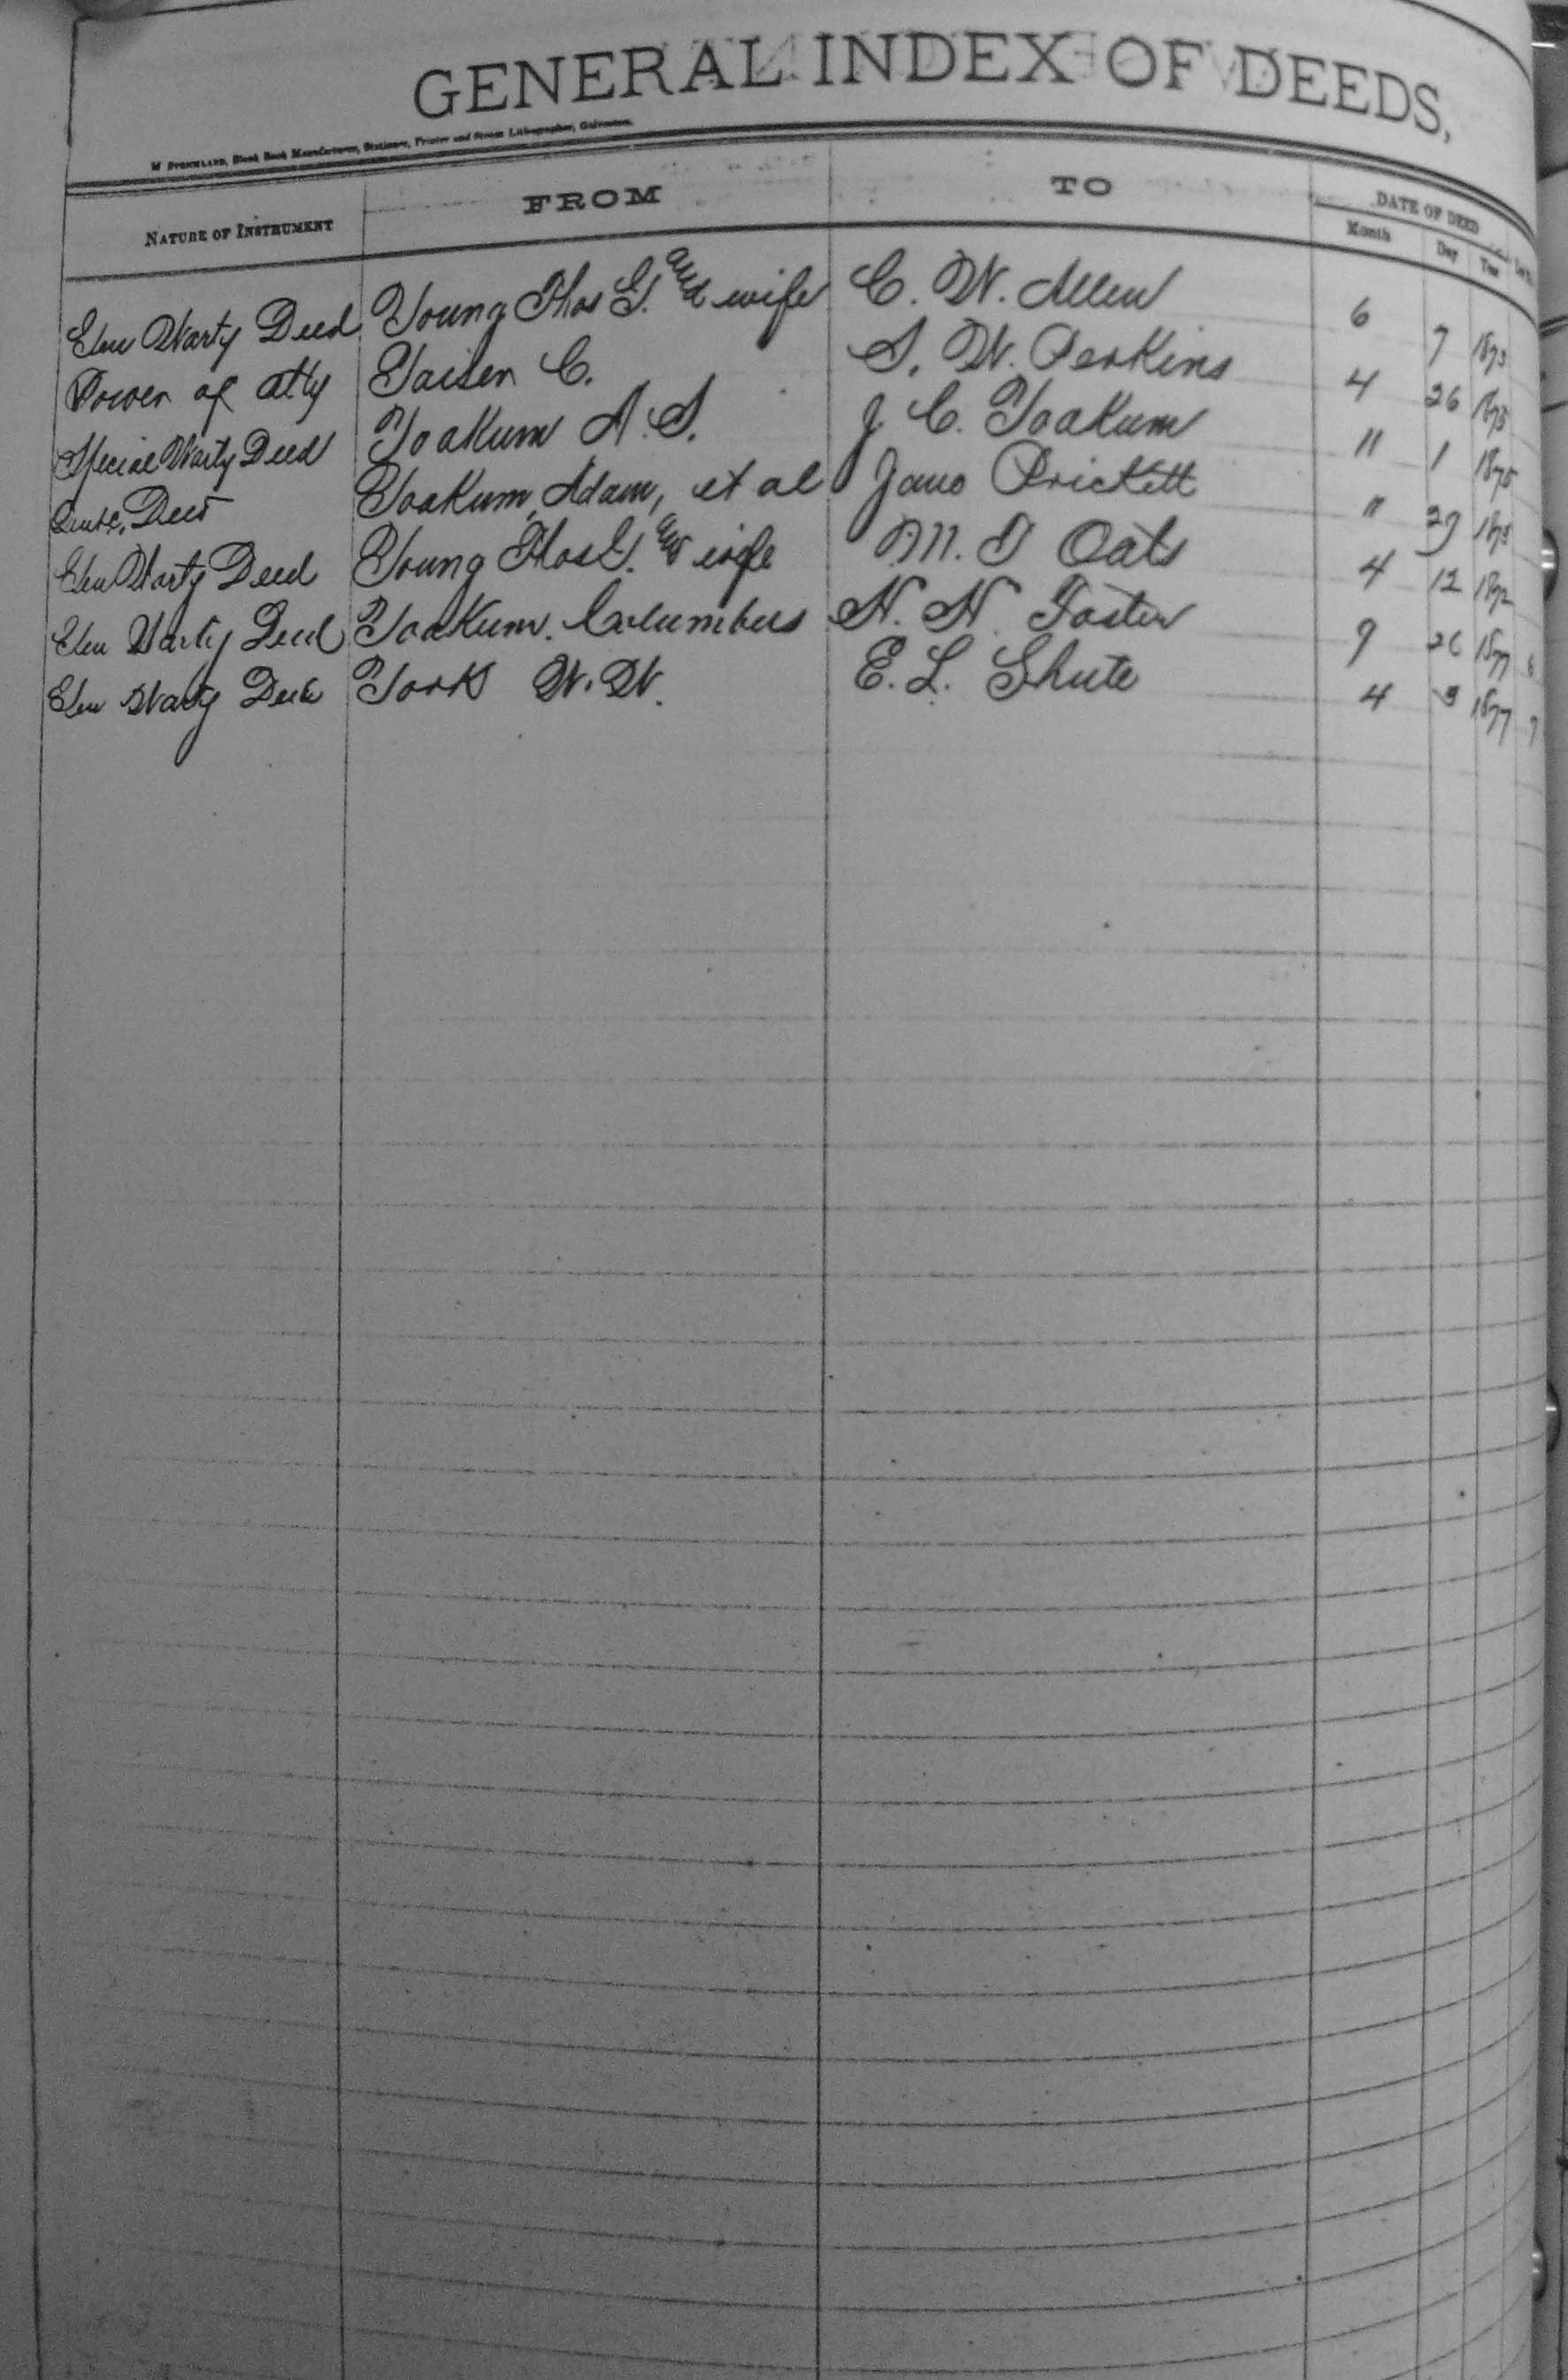 GENERAL INDEX OF DEEDS,
Blank Book Manufacturer, Stationer, Printer and Steam Lithographer, Galveston.
NATURE OF INSTRUMENT FROM TO DATE OF DEED
Month Day Year
Gen Warty Deed Young Thos G. and wife C. W. Allen 6 7 1873
Power of Atty C. S. W. Perkins 4 26 1875
Special Warty Deed Yoakum A. S. J. C. Yoakum 11 1 1875
Deed Yoakum, Adam, et al Prickett 11 29
Gen Warty Deed Young Thos G. and wife M. T Oats 4 12 1872
Gen Warty Deed Yoakum. Columbus N. N. Foster 9 26 1877
Gen Warty Deed York W. W. E. L. Shute 4 3 1877